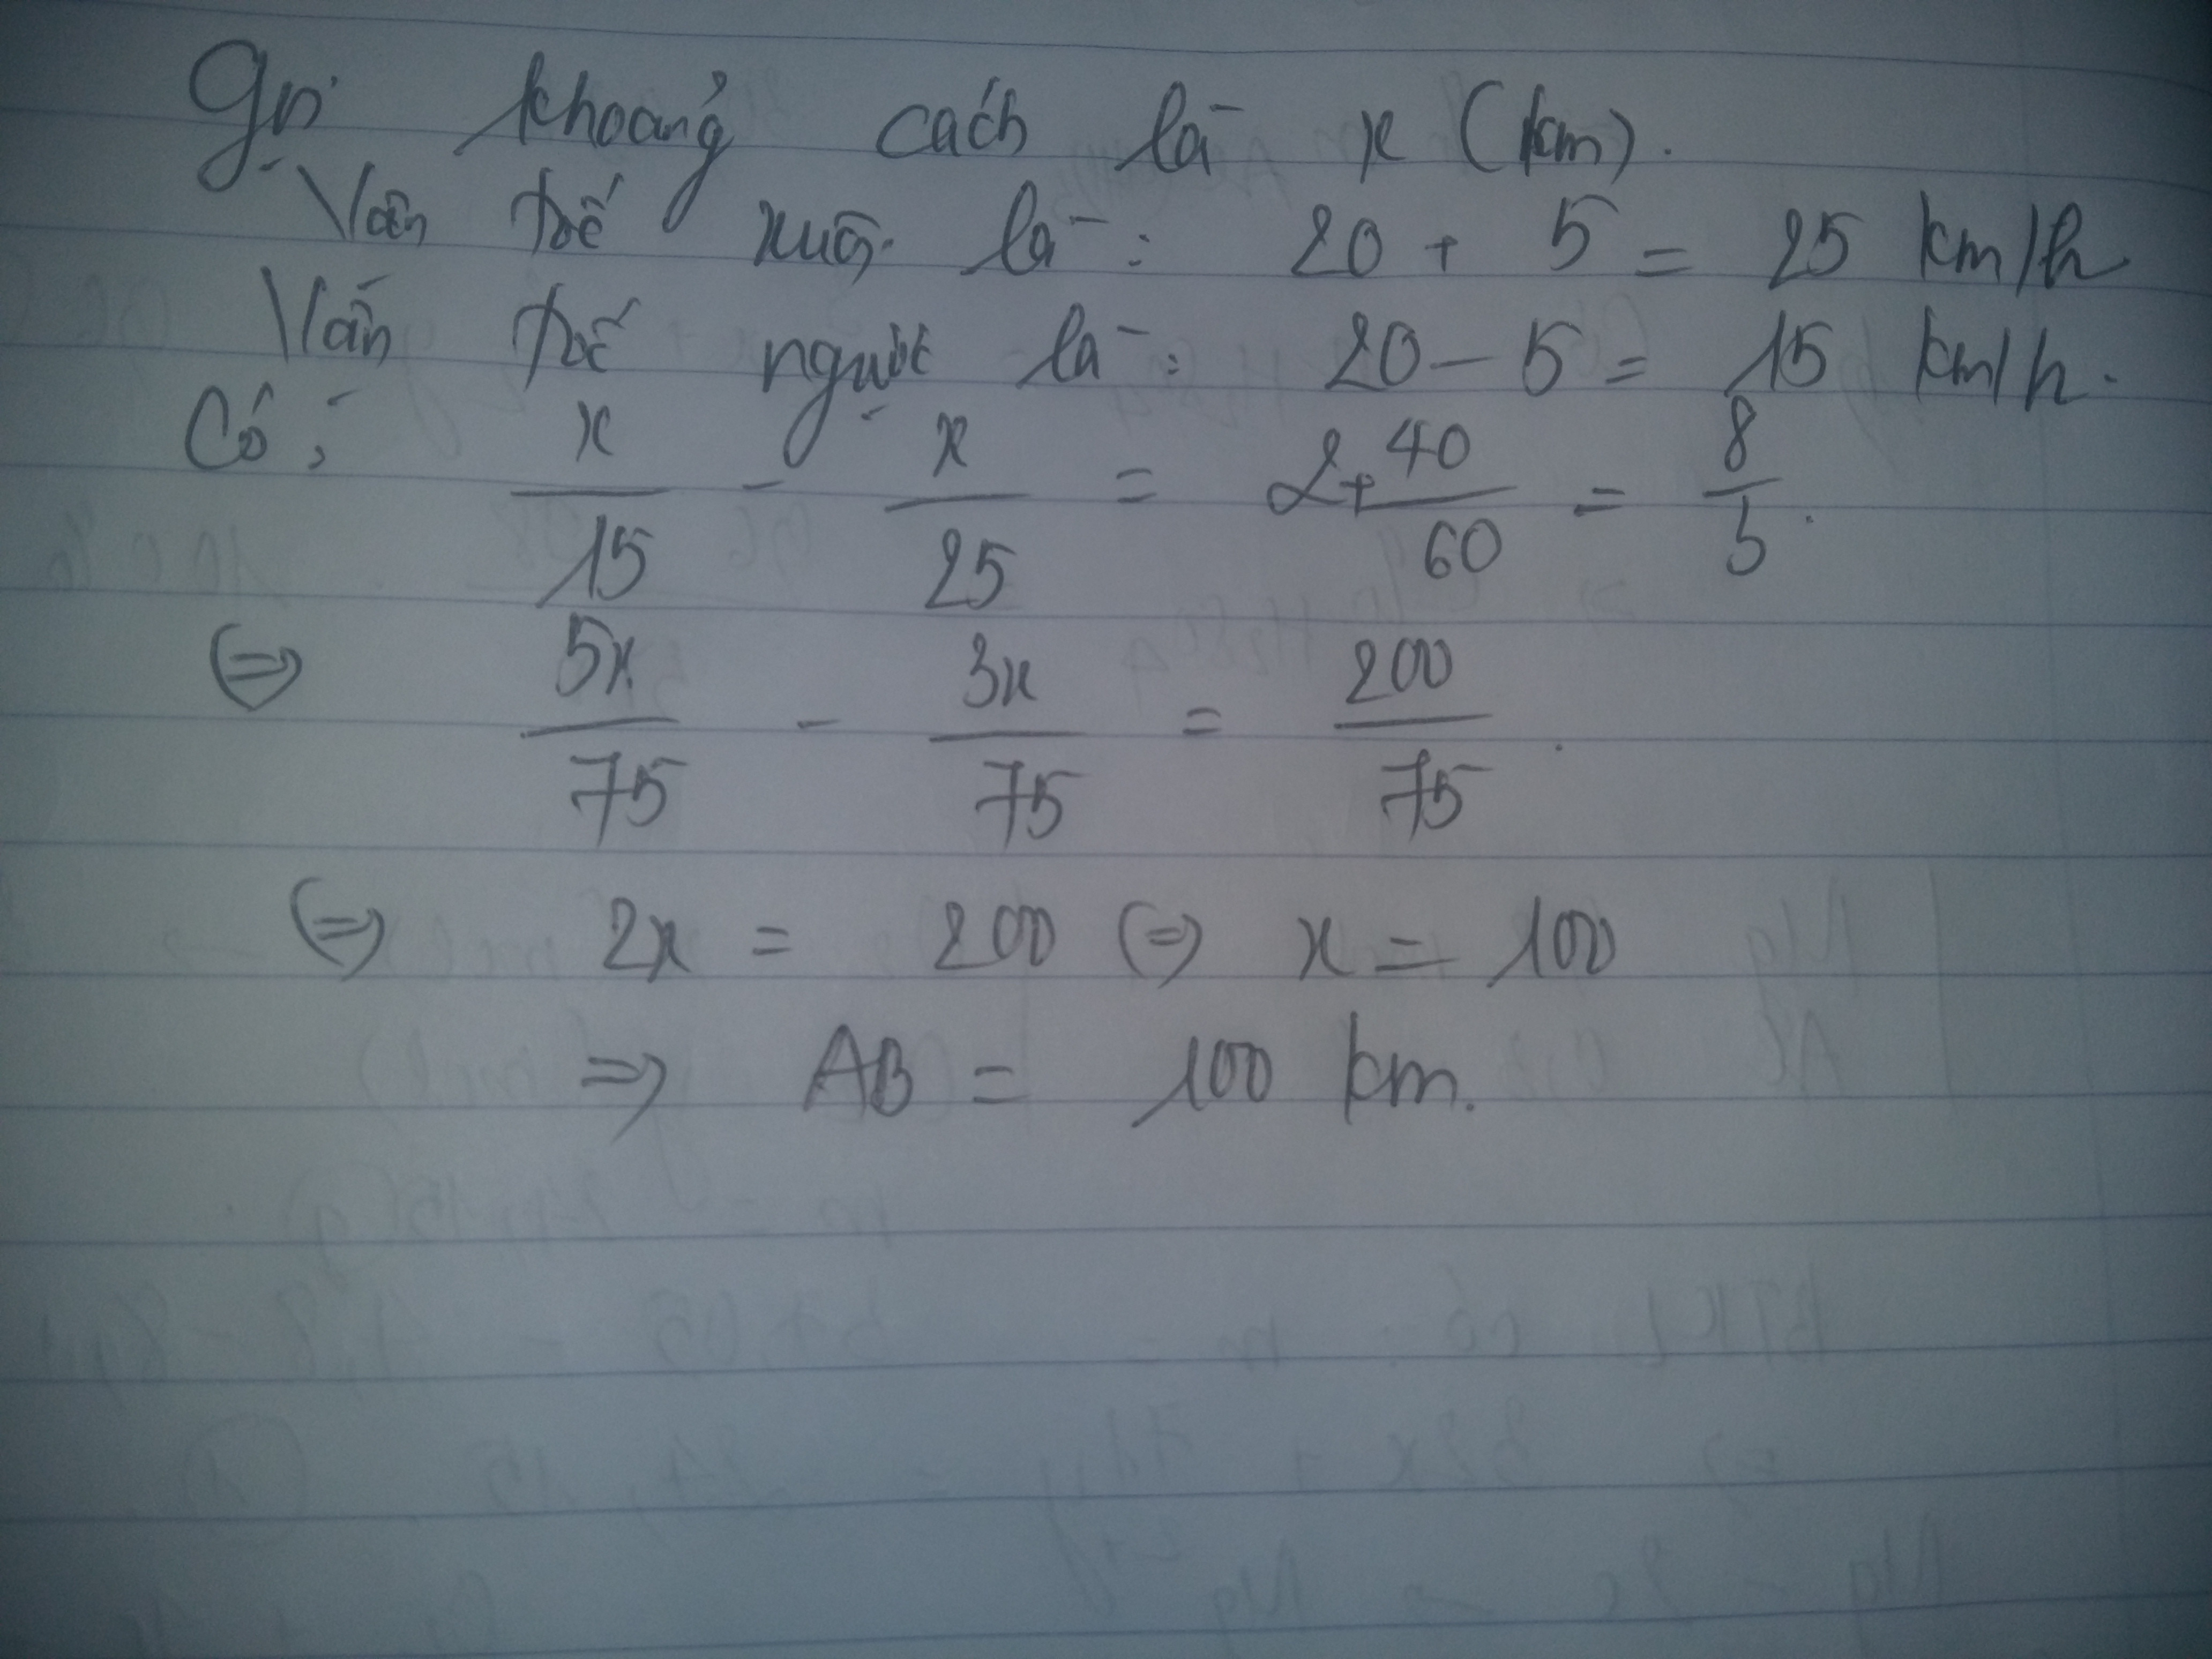 Gọi khoảng cách là x (km).
Vận tốc xuôi là: 20 + 5 = 25 km/h
Vận tốc ngược là: 20 - 5 = 15 km/h.
Có: x/15 - x/25 = 2 + 40/60 = 8/3.
(=) 5x/75 - 3x/75 = 200/75.
(=) 2x = 200 (=) x = 100
=> AB = 100 km.